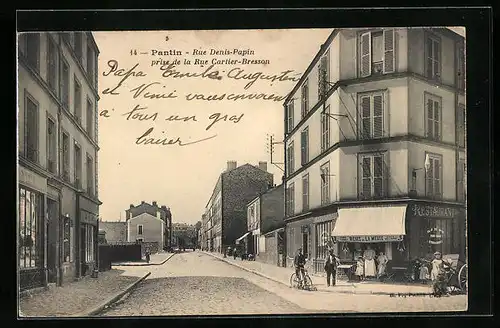 14 — Pantin – Rue Denis-Papin
prise de la Rue Cartier-Bresson
Papa Emile Augustine
et Ninie vous envoient
à tous un gros
baiser
RESTAURANT